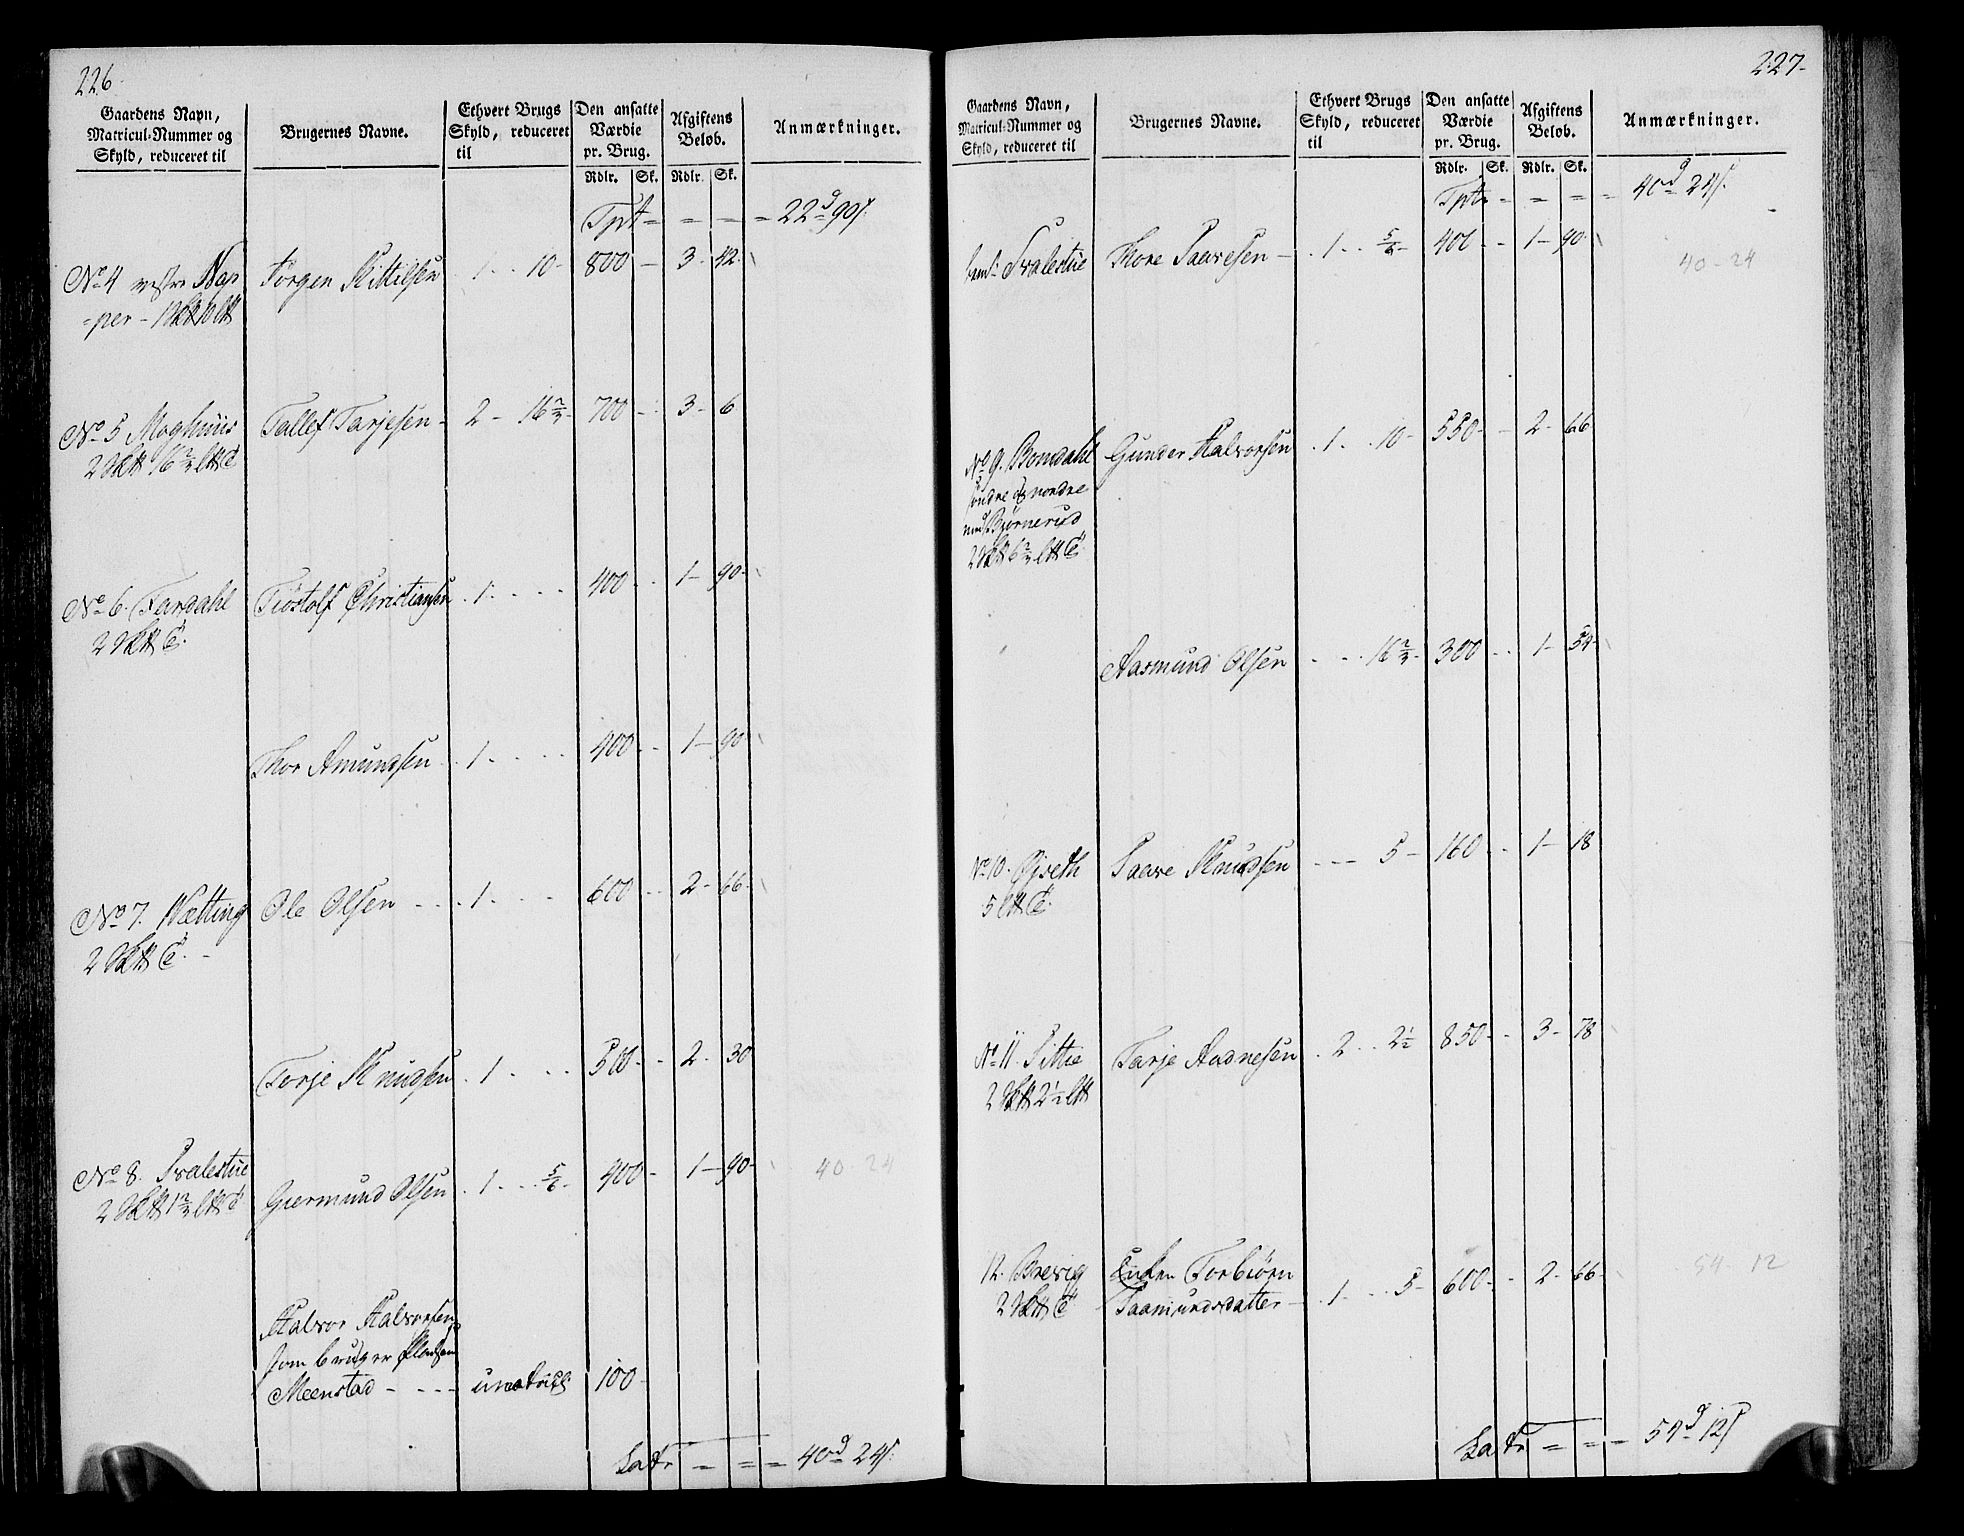 226.
Gaardens Navn, Matricul-Nummer og Skyld, reduceret til
Brugernes Navne.
Ethvert Brugs Skyld, reduceret til
Den ansatte Værdie pr. Brug.
Afgiftens Beløb.
Anmærkninger.
Rdlr. Sk. Rdlr. Sk.
Tpt = = = = 22d 90s.
No 4 vestre Nap- Jørgen Kittilsen 1 .. 10 - 800 - 3 - 42.
-per -
No 5 Moghuus Tallef Tarjesen - 2 - 16 2/3 - 700 - 3 - 6
No 6. Fardahl Tiøstolf Christiansen . 1 . . . . 400 . . 1 - 90 -
Thor Amundsen . 1 . . . . 400 - - 1 - 90
No 7. Wætting Ole Olsen - - . 1 . . . . 600 - - 2 - 66 -
Torje Knudsen . 1 . . . 500 - - 2 - 30
No 8. Svalestue Giermund Olsen . 1 . . . 5/6 - 400 - 1 - 90 -
40-24
Halvor Halvorsen
som bruger Pladsen
Meenstad - - - - 100 -
Latr = = = 40d 24s.
227-
Gaardens Navn, Matricul-Nummer og Skyld, reduceret til
Brugernes Navne.
Ethvert Brugs Skyld, reduceret til
Den ansatte Værdie pr. Brug.
Afgiftens Beløb.
Anmærkninger.
Rdlr. Sk. Rdlr. Sk.
Tpt - = = = 40d 24s.
Svalestue Thore Saavesen - . 1 . . 5/6 - 400 - - 1 - 90 -
40-24
No 9. Bomdahl Gunder Halvorsen . 1 . . 10 - 550 - - 2 - 66
søndre og nordre
med Biørnerud
Aasmund Olsen - - . 16 2/3 - 300 - . 1 - 54 -
No 10. Øjseth Saave Knudsen - - - 5 - 160 - . 1 - 18
No 11. Sittie Tarje Aadnesen . 2 . . 2 1/2 850 - . 3 - 78
12. Brevig Enken Torbiørn
Saamundsdatter - . 1 - . . 5 - 600 - . 2 - 66 -
54-12
Latr = = = 54d 12s